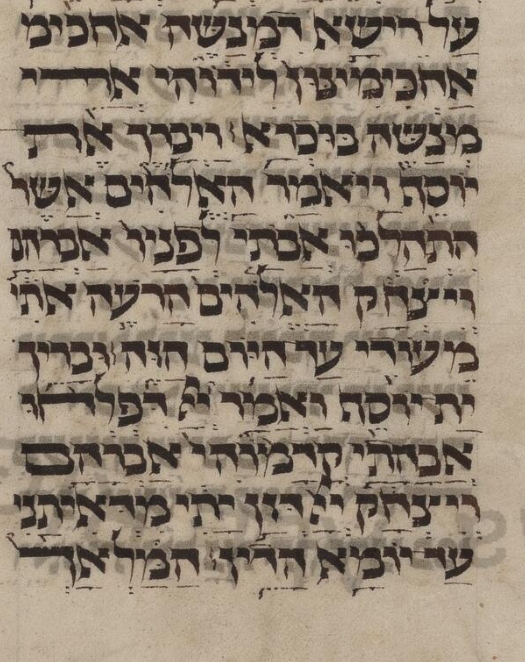 על רישא דמנשה אחכימ
אחכימינון לידוהי ארי
מנשה בוכרא ויברך את
יוסף ויאמר האלהים אשר
התהלכו אבתי לפניו אברהם
ויצחק האלהים הרעה אתי
מעודי עד היום הזה ובריך
ית יוסף ואמר יי דפלחו
אבהתי קדמוהי אברהם
ויצחק יי דזן יתי מדאיתני
עד יומא הדין המלאך